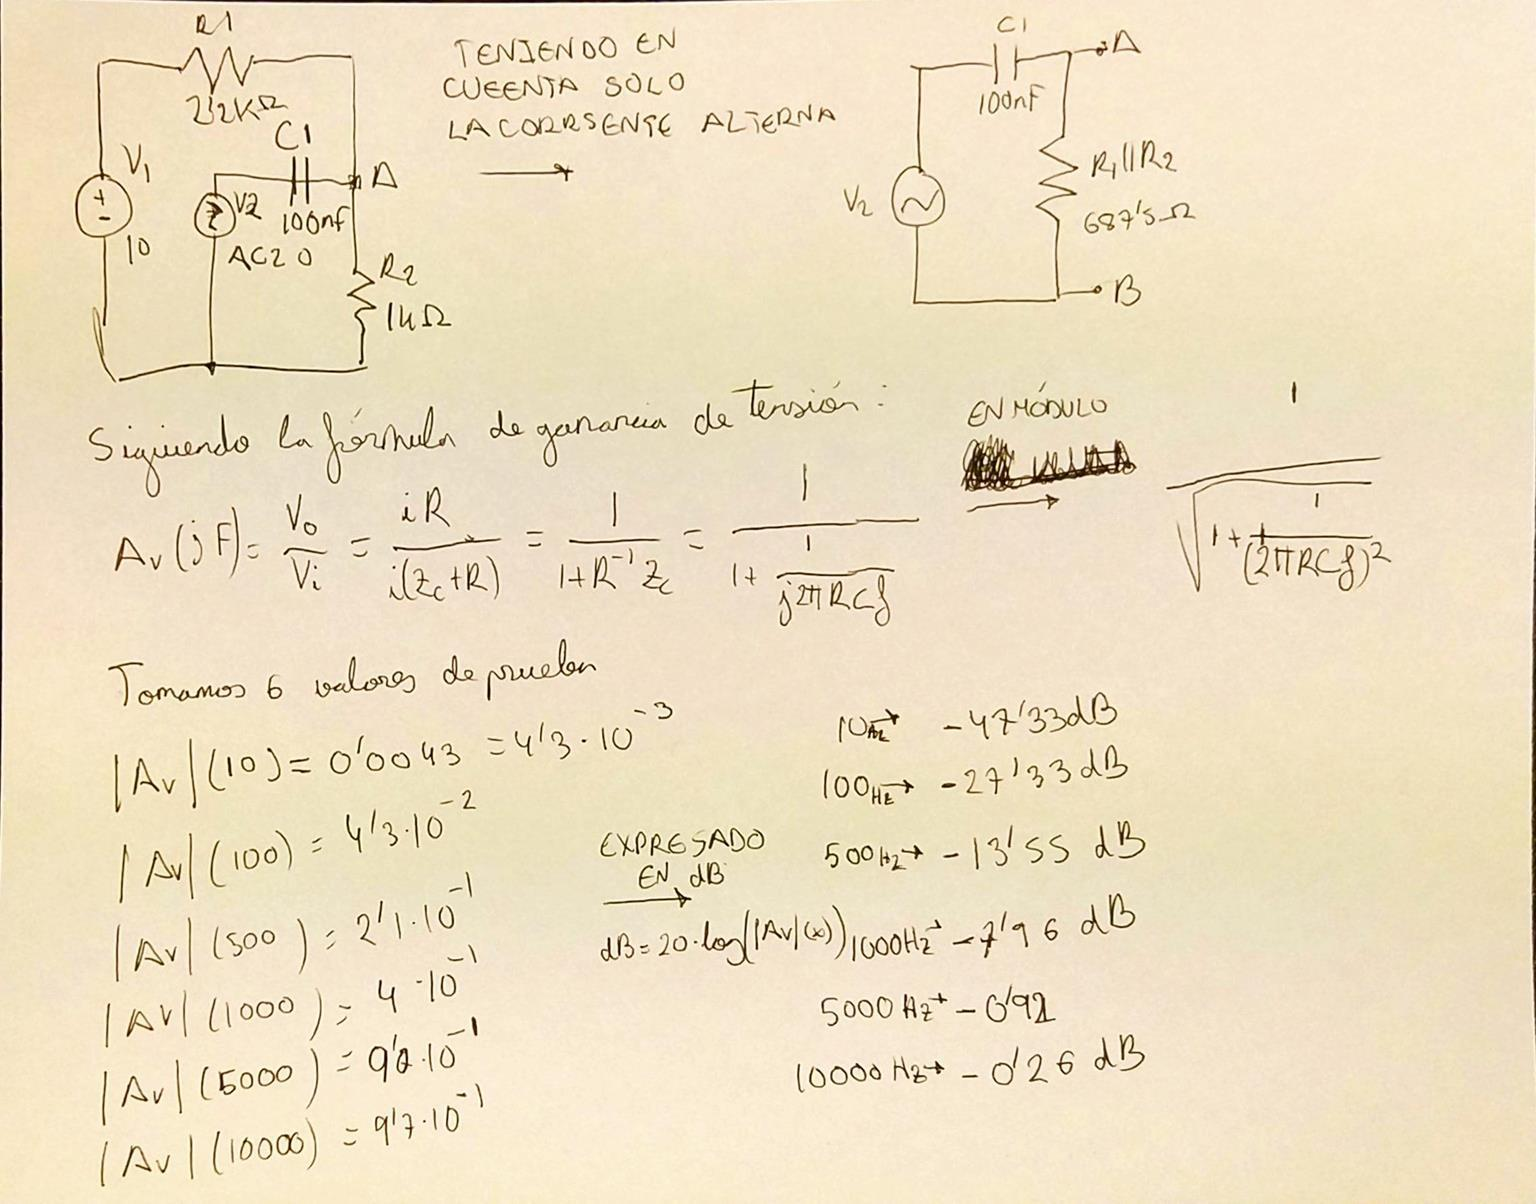 R1
2'2KΩ
C1
V1
+
-
10
V2
100nf
A
AC20
R2
1kΩ
TENIENDO EN
CUEENTA SOLO
LA CORRSENTE ALTERNA
C1
100nF
A
V2
R1||R2
687'5Ω
B
Siguiendo la fórmula de ganancia de tensión:
EN MÓDULO
Av(jF) = Vo/Vi = iR/i(Zc+R) = 1/(1+R^-1 Zc) = 1/(1+1/(j2πRCf))
1/√(1+1/(2πRCf)^2)
Tomamos 6 valores de prueba
|Av|(10) = 0'0043 = 4'3·10^-3
|Av|(100) = 4'3·10^-2
|Av|(500) = 2'1·10^-1
|Av|(1000) = 4·10^-1
|Av|(5000) = 9'0·10^-1
|Av|(10000) = 9'7·10^-1
EXPRESADO
EN dB
dB = 20·log(|Av|(x))
10Hz→ -47'33dB
100Hz→ -27'33dB
500Hz→ -13'55 dB
1000Hz→ -7'96 dB
5000Hz→ -0'92
10000Hz→ -0'26 dB